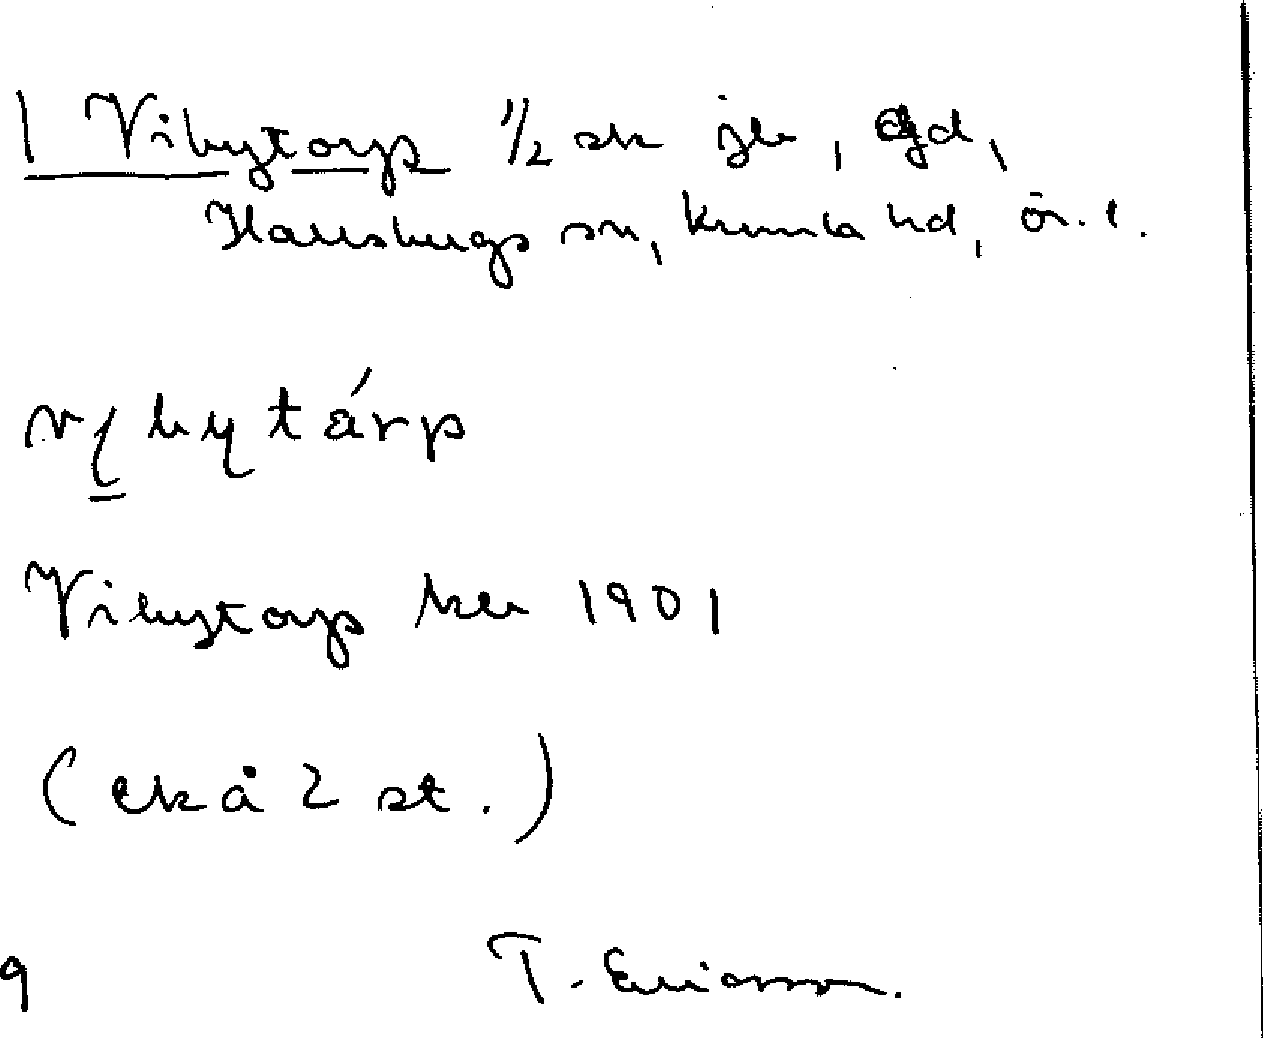 1 Vibytorp 1/2 sk jb, gd,
Hallsbergs sn, Kumla hd, ör. l.
bytárp
Vibytorp 1901
(ekå 2 st.)
9 T. Ericsson.